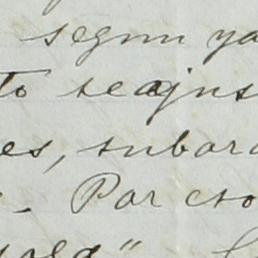 segun ya
to seajus
es, subor
. Por eso